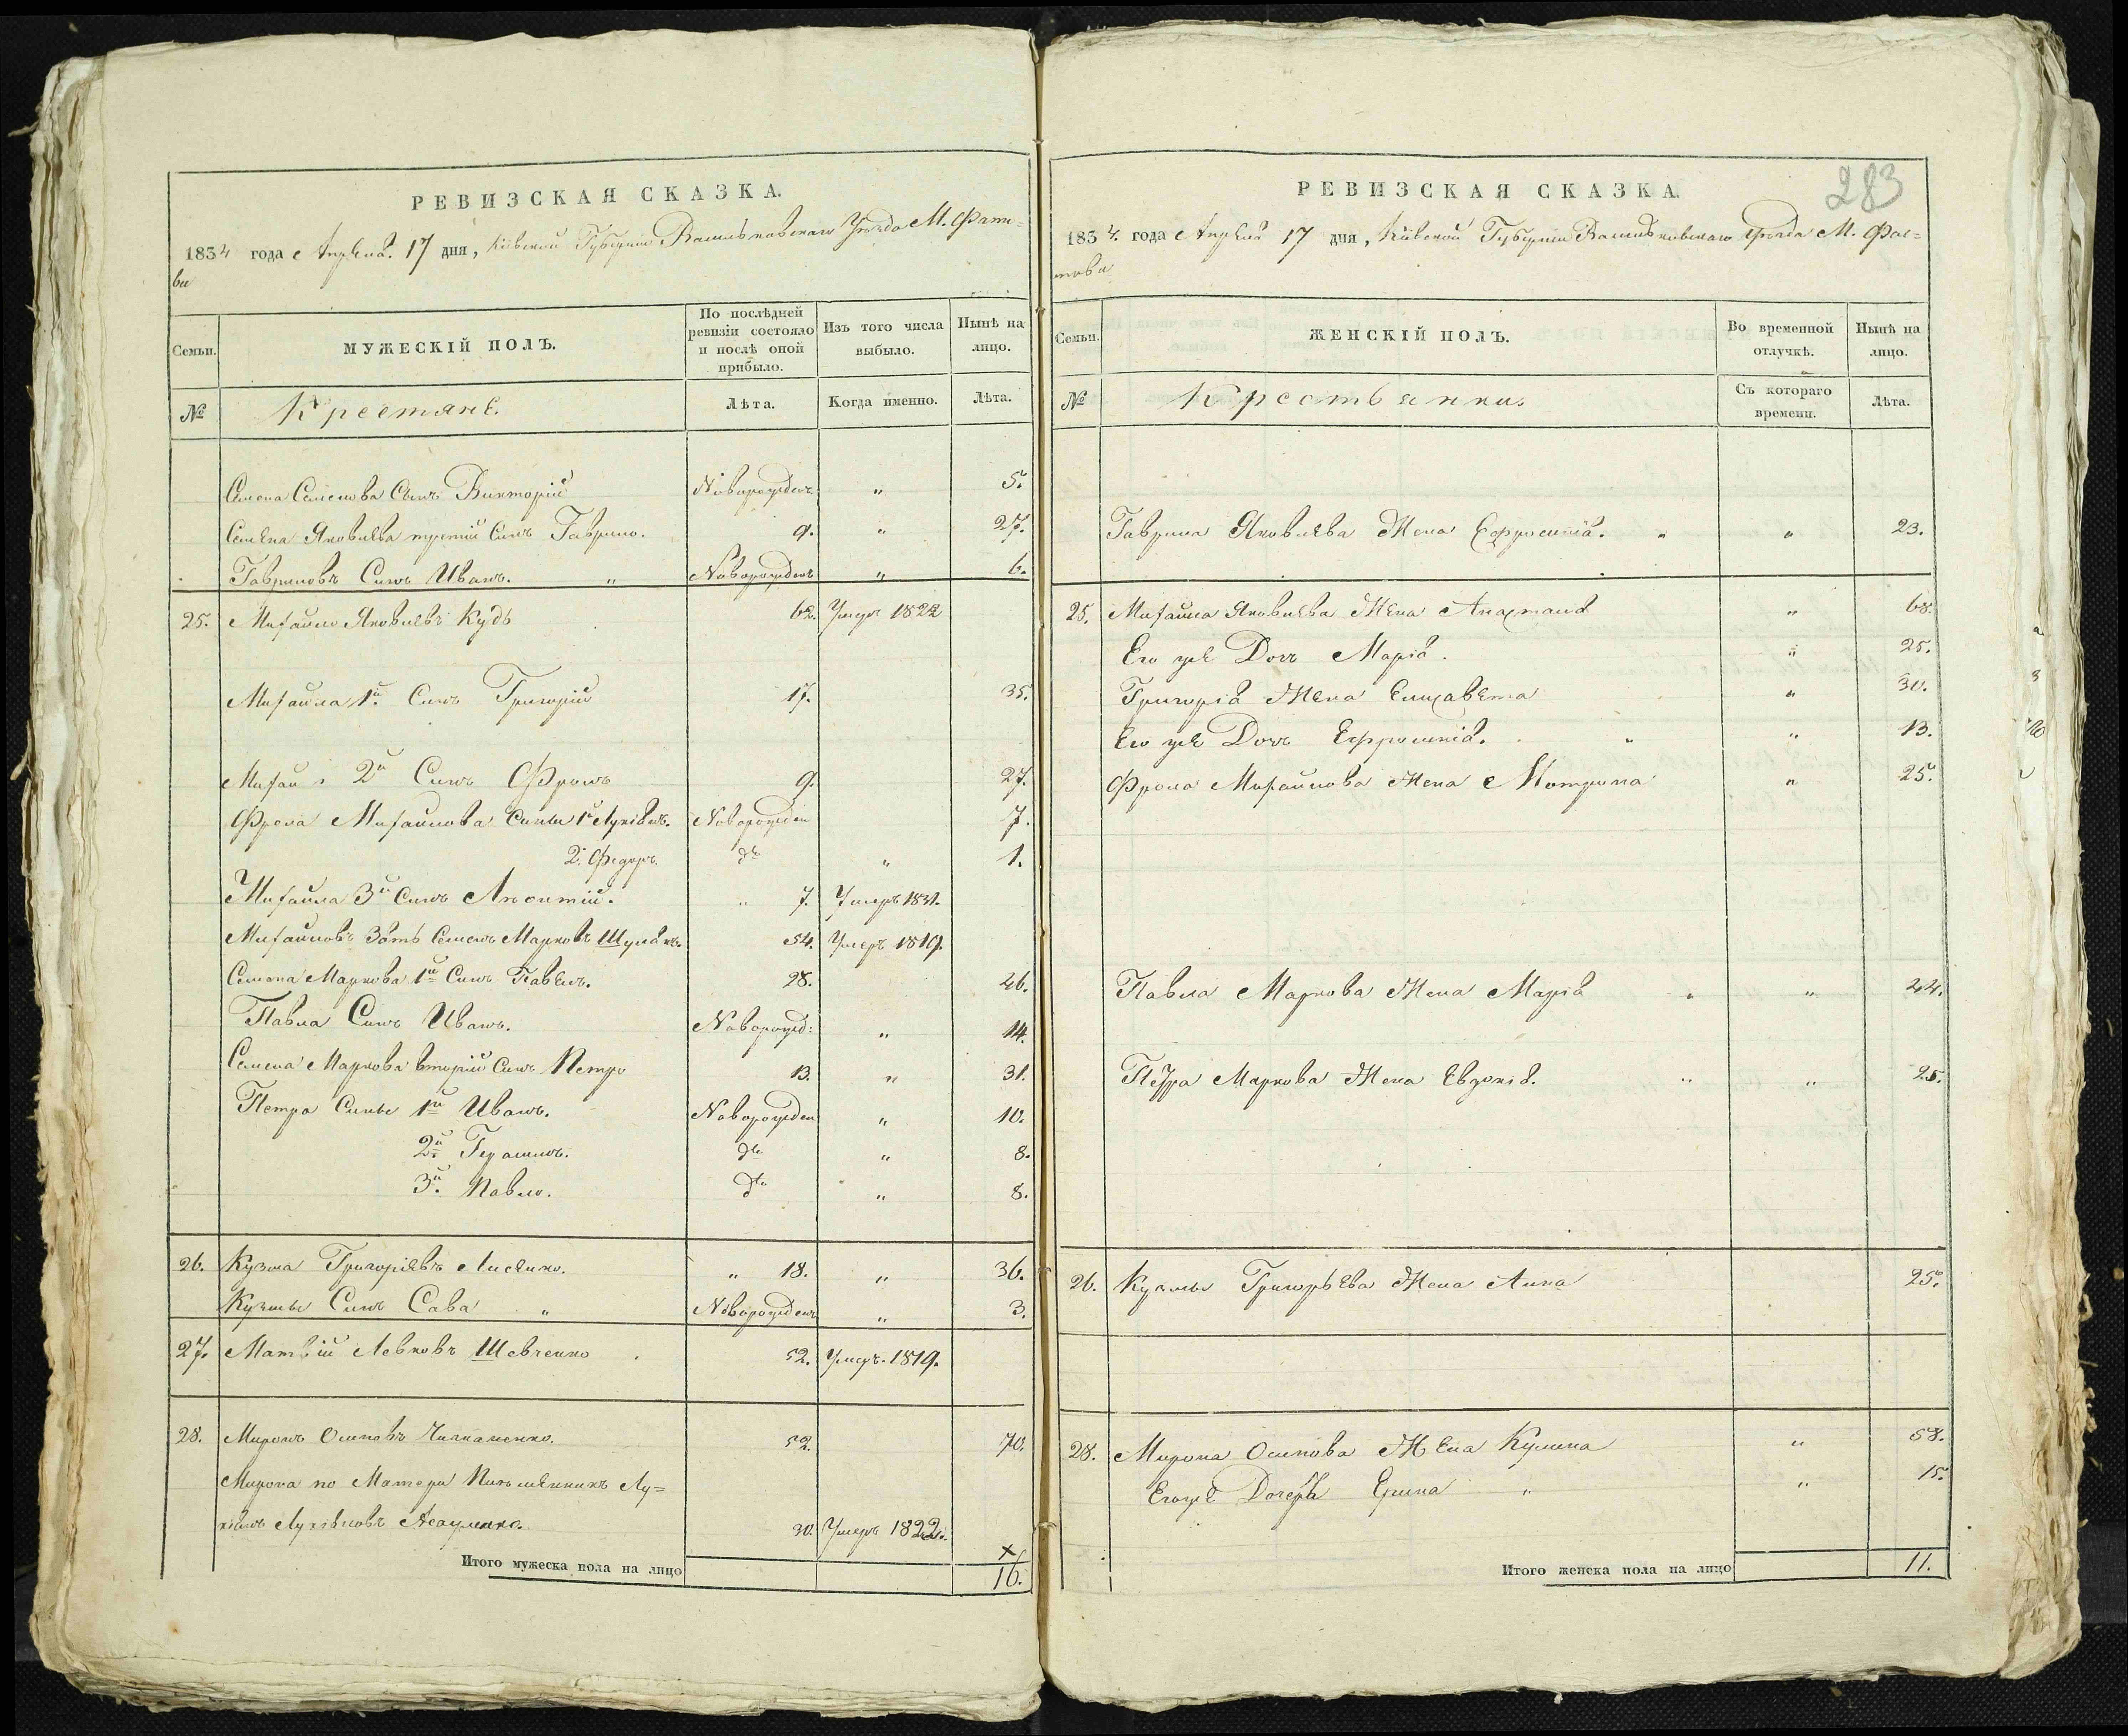 РЕВИЗСКАЯ СКАЗКА.
1834 года Апреля. 17 дня, Кіевской Губерніи Васильковскаго Уезда М. Фасто=
ва
Семьи. МУЖЕСКІЙ ПОЛЪ. По послѣдней ревизіи состояло и послѣ оной прибыло. Изъ того числа выбыло. Нынѣ на лицо.
№ Крестяне. Лѣта. Когда именно. Лѣта.
Семена Семенова Сынъ Викторій Новорожденъ " 5.
Семена Яковлева третій Сынъ Гаврило. 9. " 27.
Гавриловъ Сынъ Иванъ. " Новорожденъ " 6.
25. Михайло Яковлевъ Кудь 62. Умеръ 1822
Михайла 1й Сынъ Григорій 17. 35.
2й Сынъ Фролъ 9. 27.
Фрола Михайлова Сыны 1й Лукіянъ. Новорожден 7.
2. Федоръ. дто " 1.
Михайла 3й Сынъ Леонтій. " 7. Умеръ 1831.
Михайловъ Зять Семенъ Марковъ 54. Умеръ 1819.
Семена Маркова 1й Сынъ Павелъ. 28. 46.
Павла Сынъ Иванъ. Новорожд: " 14.
Семена Маркова вторій Сынъ Петро 13. " 31.
Петра Сыны 1й Иванъ. Новорожден " 10.
2й Герасимъ. дто " 8.
3й Павло. дто " 8.
26. Кузма Григоріевъ Лисенко. " 18. " 36.
Кузмы Сынъ Сава " Новорожденъ " 3.
27. Матвій Левковъ Шевченко 52. Умеръ 1819.
28. Миронъ Осиповъ 52. 70.
Мирона по Матери Племянникъ Лу=
кіянъ Лукіяновъ 30. Умеръ 1822.
Итого мужеска пола на лицо 16.
283
РЕВИЗСКАЯ СКАЗКА.
1834. года Апреля 17 дня, Кіевской Губерніи Васильковскаго Уезда М. Фас=
това
Семьи. ЖЕНСКІЙ ПОЛЪ. Во временной отлучкѣ. Нынѣ на лицо.
№ Крестьянки. Съ котораго времени. Лѣта.
Гаврила Яковлева Жена Ефросинія. " " 23.
25. Михайла Яковлева Жена Анастасія " 68.
Его же Дочь Марія. " 25.
Григорія Жена Елисавета " 30.
Его же Дочь Ефросинія. " " 13.
Фрола Михайлова Жена Мотрина " 25.
Павла Маркова Жена Марія " " 44.
Петра Маркова Жена Евдокія. " " 25.
26. Кузмы Григорьева Жена Анна 25.
28. Мирона Осипова Жена Кулина " 58.
Егоже Дочерь Ерина " " 15.
Итого женска пола на лицо 11.